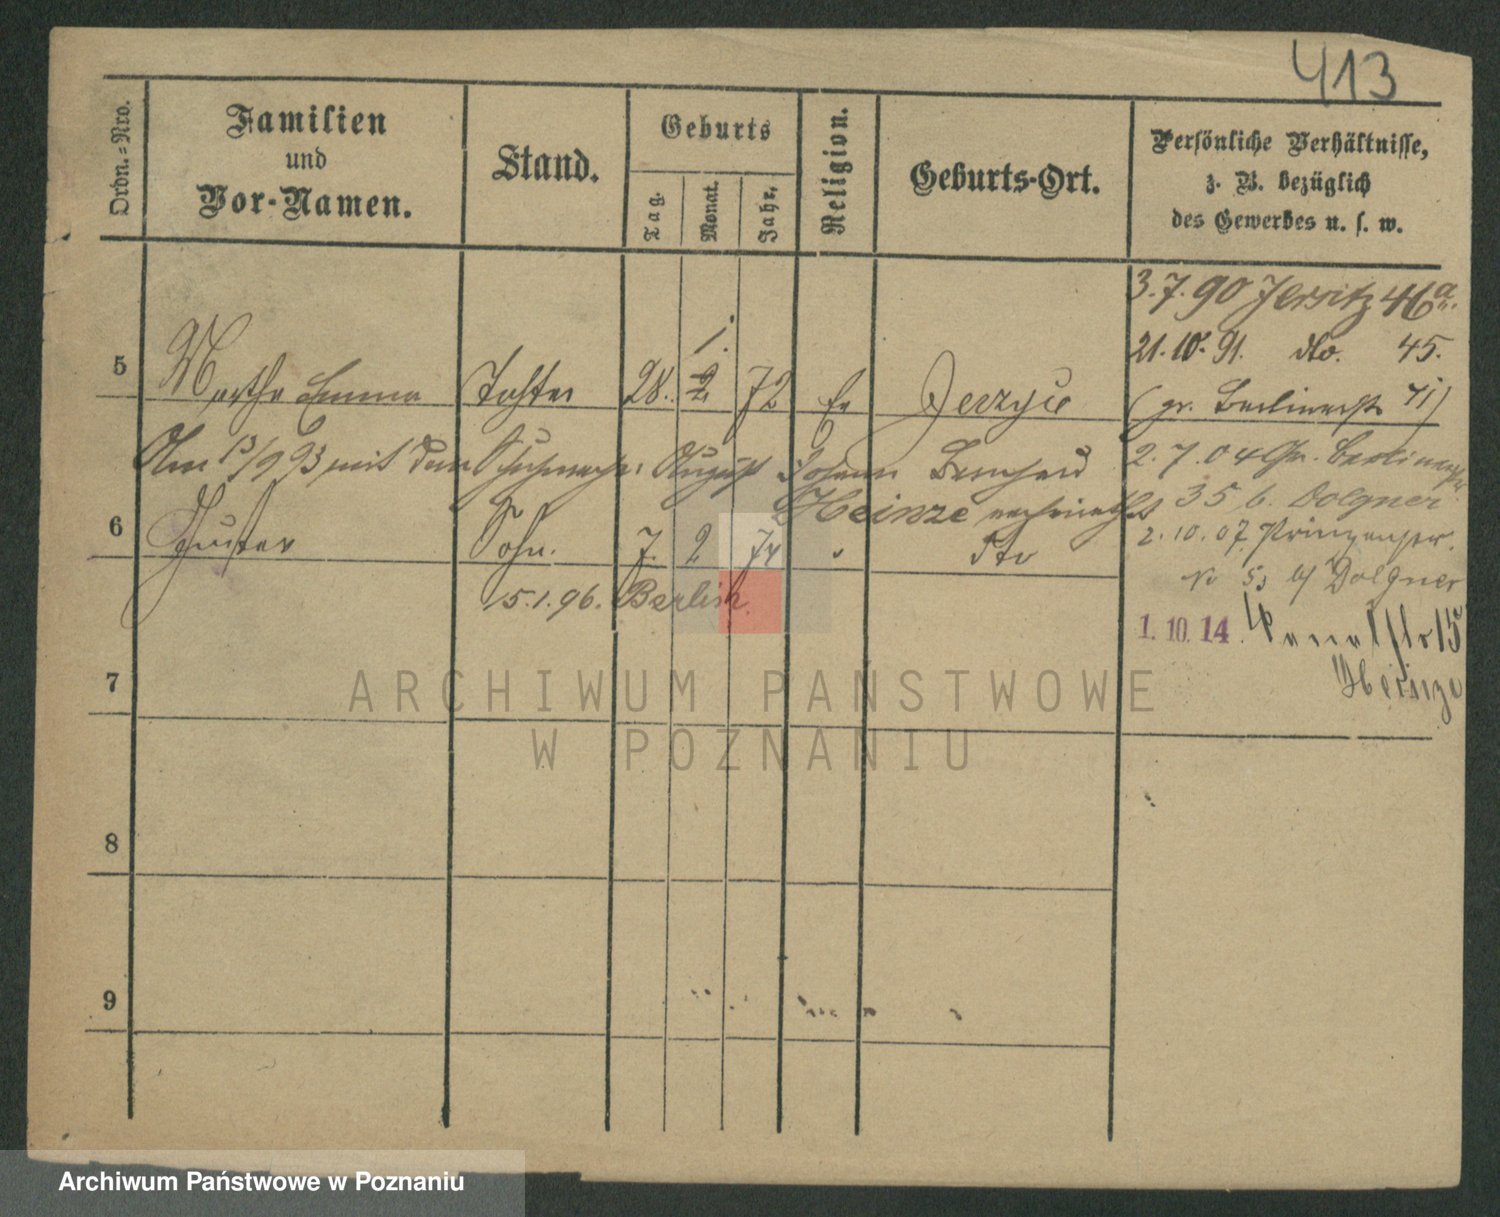 413
Ordn.-Nro.
Familien
und
Vor-Namen.
Stand.
Geburts
Tag.
Monat.
Jahr.
Religion.
Geburts-Ort.
Persönliche Verhältnisse,
z. B. bezüglich
des Gewerbes u. s. w.
3.7.90 Jersitz 46a.
21.10.91. dto. 45.
1.
5 Martha Emma Tochter 28. 2 72 Ev Jerzyce (gr. Berlinerstr 41)
Am 13/9 93 mit dem Schuhmacher August Johann Bernhard
Heinze verheirathet
2.7.04 Gr. Berlinerstr.
35 b. Dolgner
6 Gustav Sohn. 7. 2 74 " dto
2.10.07. Prinzenstr.
No 53 b/ Dolgner
15.1.96. Berlin.
1.10.14. 15
Heinze
7
8
9
ARCHIWUM PAŃSTWOWE
W POZNANIU
Archiwum Państwowe w Poznaniu